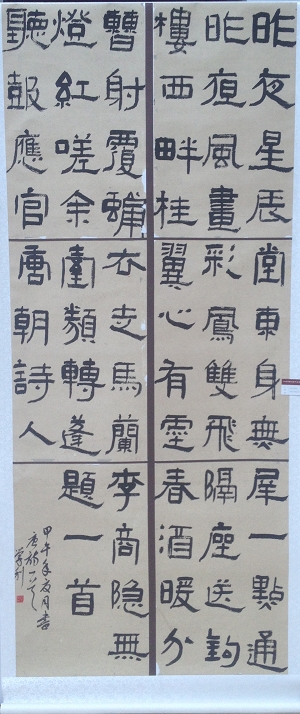 昨夜星辰
昨夜風畫
樓西畔桂
堂東身無
彩鳳雙飛
翼心有靈
犀一點通
隔座送鈎
春酒暖分
曹射覆蠟
燈紅嗟余
聽鼓應官
去走馬蘭
臺類轉蓬
唐朝詩人
李商隐無
題一首
甲午年夏月書